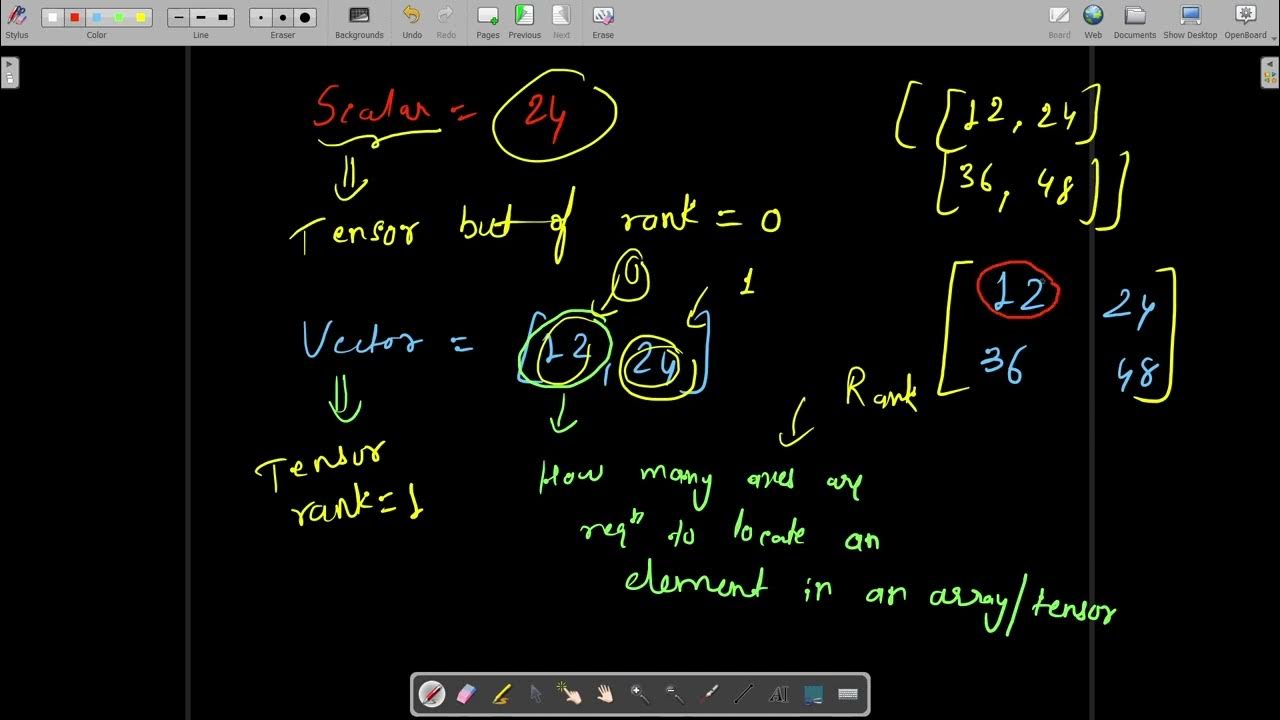 Stylus
Color
Line
Eraser
Backgrounds
Undo
Redo
Pages
Previous
Next
Erase
Board
Web
Documents
Show Desktop
OpenBoard
Scalar = 24
Tensor but of rank = 0
Vector = [12, 24]
0
1
Tensor
rank=1
How many axes are
reqⁿ to locate an
element in an array/tensor
[[12, 24]
[36, 48]]
Rank
12 24
36 48